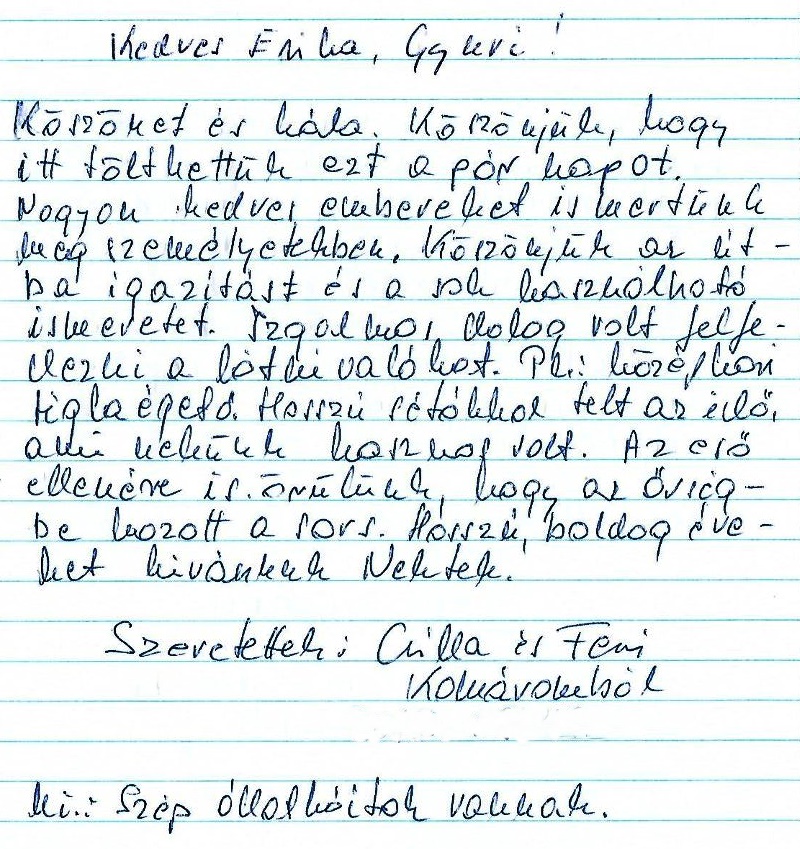 Kedves Erika, Gyuri!
Köszönet és hála. Köszönjük, hogy
itt tölthettük ezt a pár napot.
Nagyon kedves embereket ismertünk
meg személyetekben. Köszönjük az út-
ba igazítást és a sok használható
ismeretet. Izgalmas dolog volt felfe-
dezni a látnivalókat. Pl.: középkori
téglaégető. Hosszú sétákkal telt az idő,
ami nekünk hasznos volt. Az eső
ellenére is örülünk, hogy az Őrség-
be hozott a sors. Hosszú, boldog éve-
ket kivánunk Nektek.
Szeretettel: Csilla és Feri
Komáromból
Ui.: Szép állatkáitok vannak.